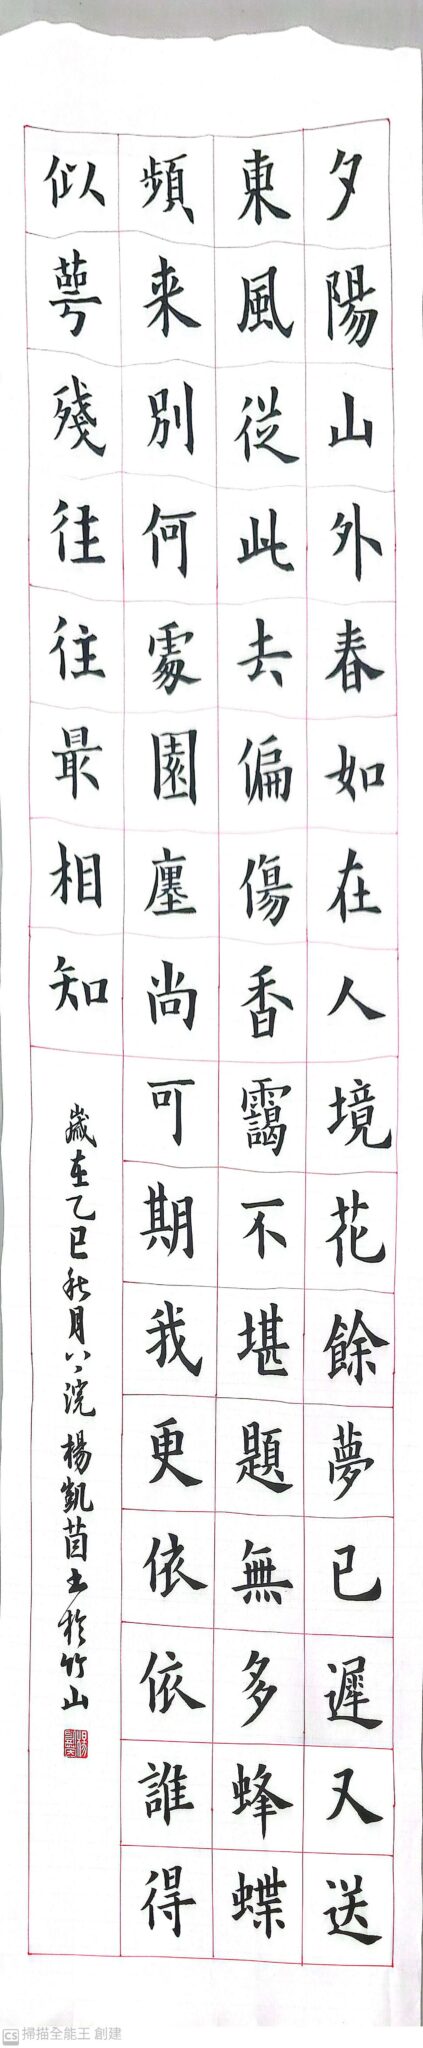 夕陽山外春如在人境花餘夢已遲又送
東風從此去偏傷香靄不堪題無多蜂蝶
頻来別何處園廛尚可期我更依依誰得
似蕚殘往往最相知
歲在乙巳秋月浣楊凱茵书於竹山
CS 掃描全能王 創建